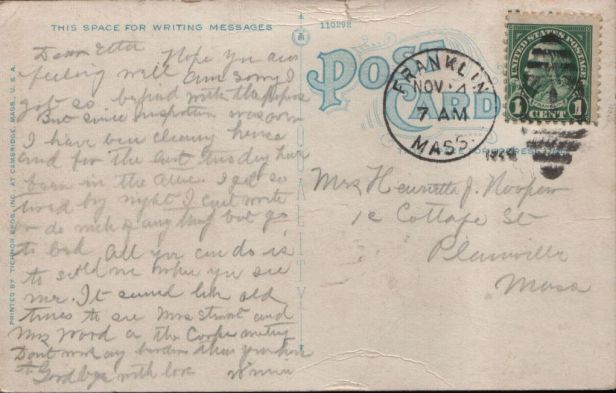 THIS SPACE FOR WRITING MESSAGES
110292
POST CARD
FRANKLIN
NOV. 4
7 AM
MASS.
UNITED STATES POSTAGE
1 CENT 1
PRINTED BY TICHNOR BROS. INC. AT CAMBRIDGE, MASS., U.S.A.
QUALITY
Dear Etta Hope you are
feeling well am sorry I
got so behind with the
But since inspection was over
I have been cleaning house
and for the last two days have
been in the attic. I get so
tired by night I can't write
or do much of any thing but go
to bed. All you can do is
to scold me when you see
me. It seemed like old
times to see Mrs and
Mrs Wood at the meeting
Dont work any harder than you have
to Goodbye with love
Mrs Henrietta J.
Cottage St
Plainville
Mass